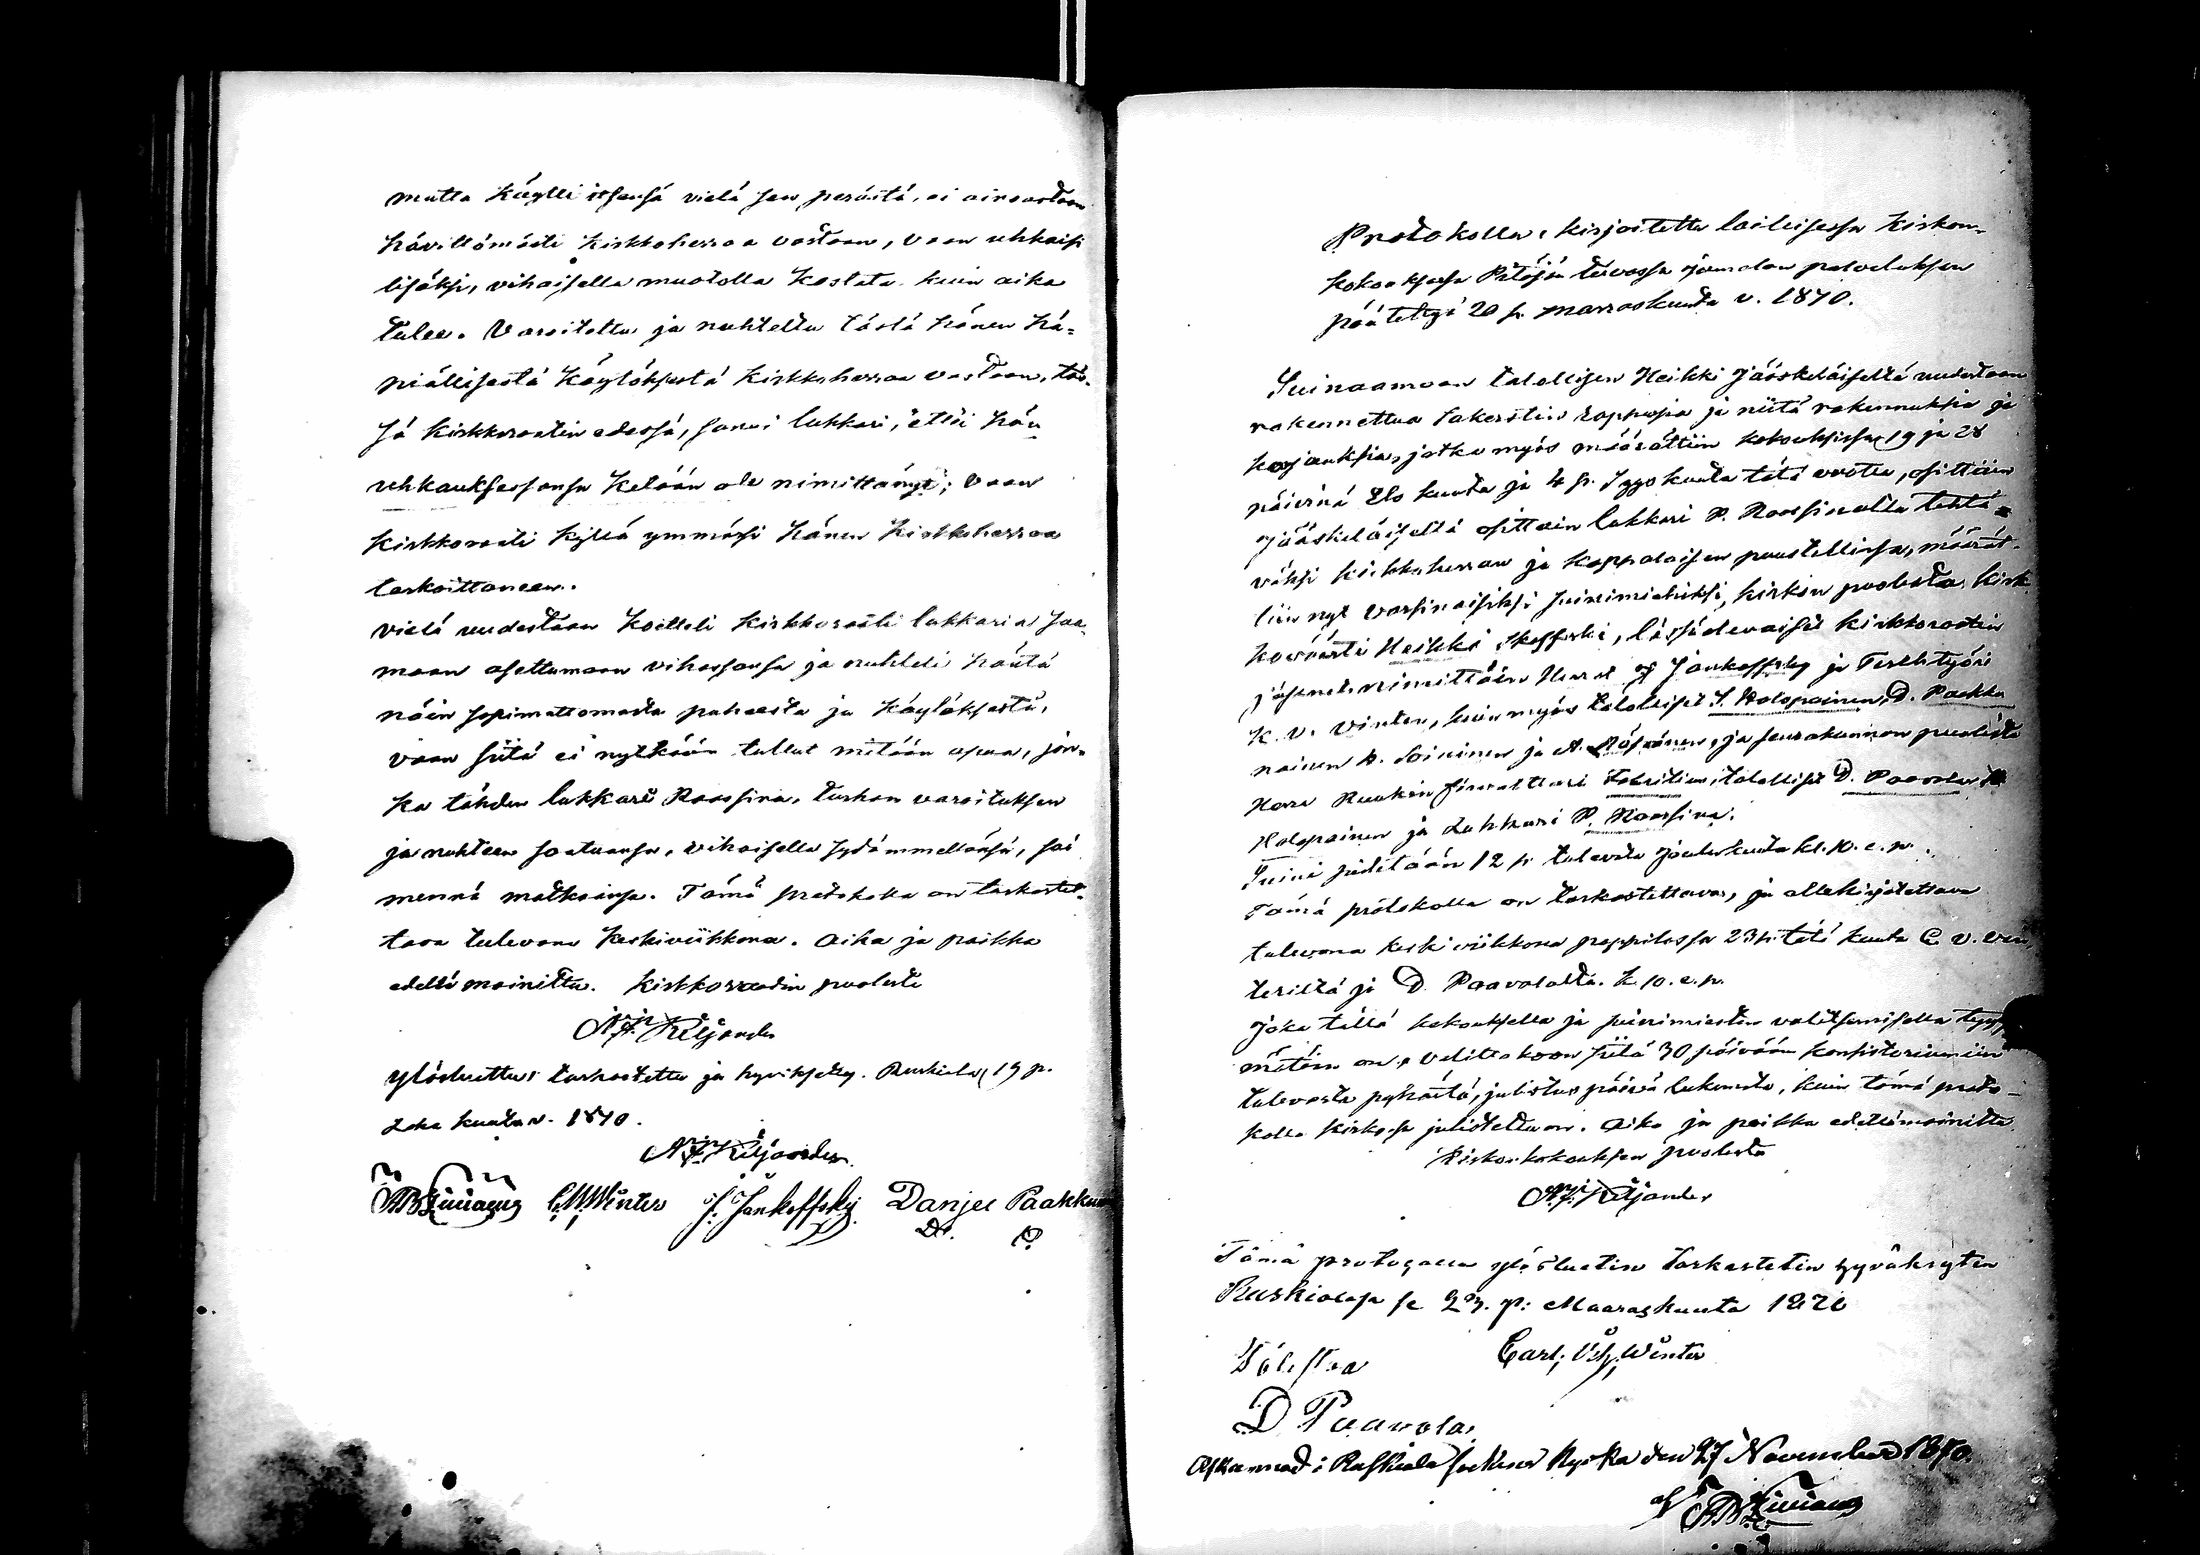 mutta käytti itsensä vielä sen perästä, ei ainoastaan
hävittömästi kirkkoherraa vastaan, vaan uhkaisi
lisäksi, vihaisella muotolla kostata kuin aika
tulee. Varoitettu ja nuhteltu tästä hänen hä-
piällisestä käytöksestä kirkkoherraa vastaan, täs-
sä kirkkoraatin edessä, sanoi lukkari, että hän
uhkauksessansa ketään ole nimittänyt; vaan
kirkkoraati kyllä ymmärsi hänen kirkkoherraa
tarkoittaneen.
vielä uudestaan koitteli kirkkoraati lukkaria saa-
maan asettumaan vihassansa ja nuhteli häntä
näin sopimattomasta puheesta ja käytöksestä,
vaan siitä ei nytkään tullut mitään apua, jon-
ka tähden lukkari Raassina, turhan varoituksen
ja nuhteen saatuansa, vihaisella sydämmellänsä, sai
mennä matkaansa. Tämä protokolla on tarkastet-
tava tulevana keskiviikkona. Aika ja paikka
edellä mainittu. Kirkkoraadin puolesta
A. F. Kiljander
Ylösluettu, tarkastettu ja hyväksytty. Ruskiala 19 p.
Loka kuuta v. 1870.
A. F. Kiljander
C. W. Winter J. Jankoffsky Danjel Paakkunai
D. P.
Protokolla, kirjoitettu laillisessa kirkon-
kokouksessa Pitäjän tuvassa jumalan palveluksen
päätettyä 20 p. marraskuuta v. 1870.
talollisen Heikki Jääskeläiseltä uudestaan
rakennettua rappusia ja niitä rakennuksia ja
korjauksia, jotka myös määrättiin kokouksissa 19 ja 28
päivinä Elo kuuta ja 4 p. Syys kuuta tätä vuotta, osittain
Jääskeläiseltä osittain lukkari P. Raassinalta tehtä-
väksi kirkkoherran ja kappalaisen puustellissa, määrät-
tiin nyt varsinaisiksi syynimiehiksi, kirkon puolesta kirk
Heikki Skoffski, läsnäolevaiset kirkkoraatin
jäsenet nimittäin Herrat J. Jankoffsky ja
K. V. Vinter, kuin myös talolliset S. Holopainen, D. Paakku
nainen A. Soininen ja A. , ja seurakunnan puolesta
Herra Ruukin talolliset D. Paavolainen
Holopainen ja Lukkari P. Raassina.
Syyni pidetään 12 p. tulevata Joulukuuta kl. 10. e. p.
Tämä protokolla on tarkastettava, ja allekirjotettava
tulevana keskiviikkona pappilassa 23 p. tätä kuuta C. V. Vin
teriltä ja D. Paavolalta. k. 10. e. p.
Joka tällä kokouksella ja syynimiesten valitsemisella tyyty
mätöin on, valittakoon siitä 30 päivään konsistoriumiin
tulevasta pyhästä, julistus päivä lukematta, kuin tämä proto-
kolla kirkossa julistettu on. Aika ja paikka edellämainittu.
Kirkonkokouksen puolesta
A. F. Kiljander
Tämä protogalla ylösluetin tarkastetin hyväksytin
Ruskialasa se 23. p: Maaraskuuta 1870
Carl. Vilh. Winter
D Paavola.
Afkunnad i Ruskiala sockens kyrka den 27 November 1870.